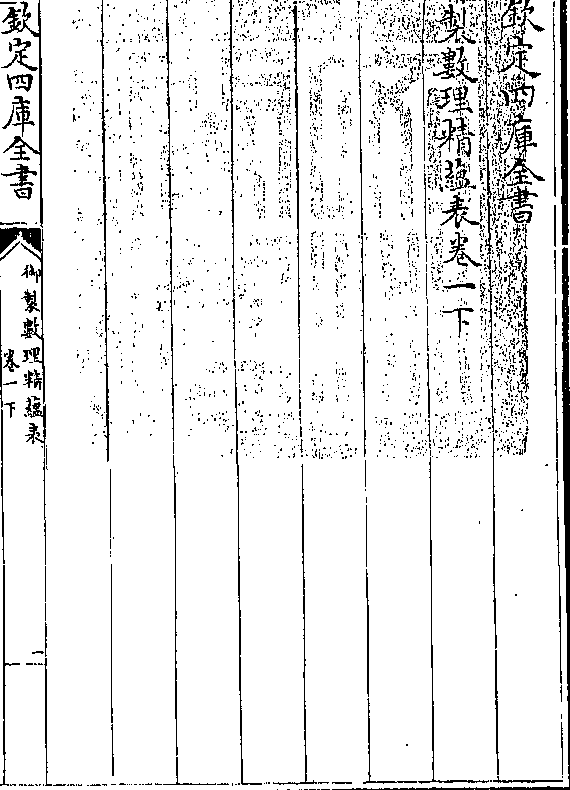 欽定四庫全書
製數理精蘊表卷一下
欽定四庫全書
御製數理精蘊表
卷一下
一